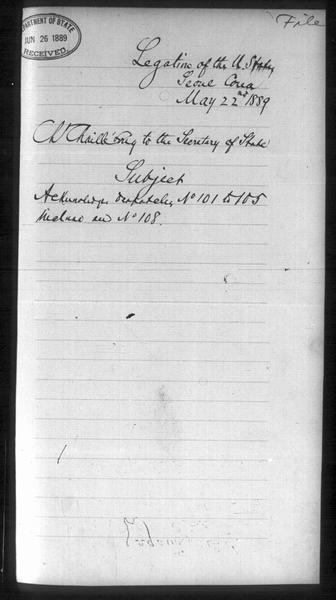 File
DEPARTMENT OF STATE
JUN 26 1889
RECEIVED
Legation of the U. States
Seoul Corea
May 22nd 1889
to the Secretary of State
Subject
Acknowledges despatches No 101 to 105
and No 108.